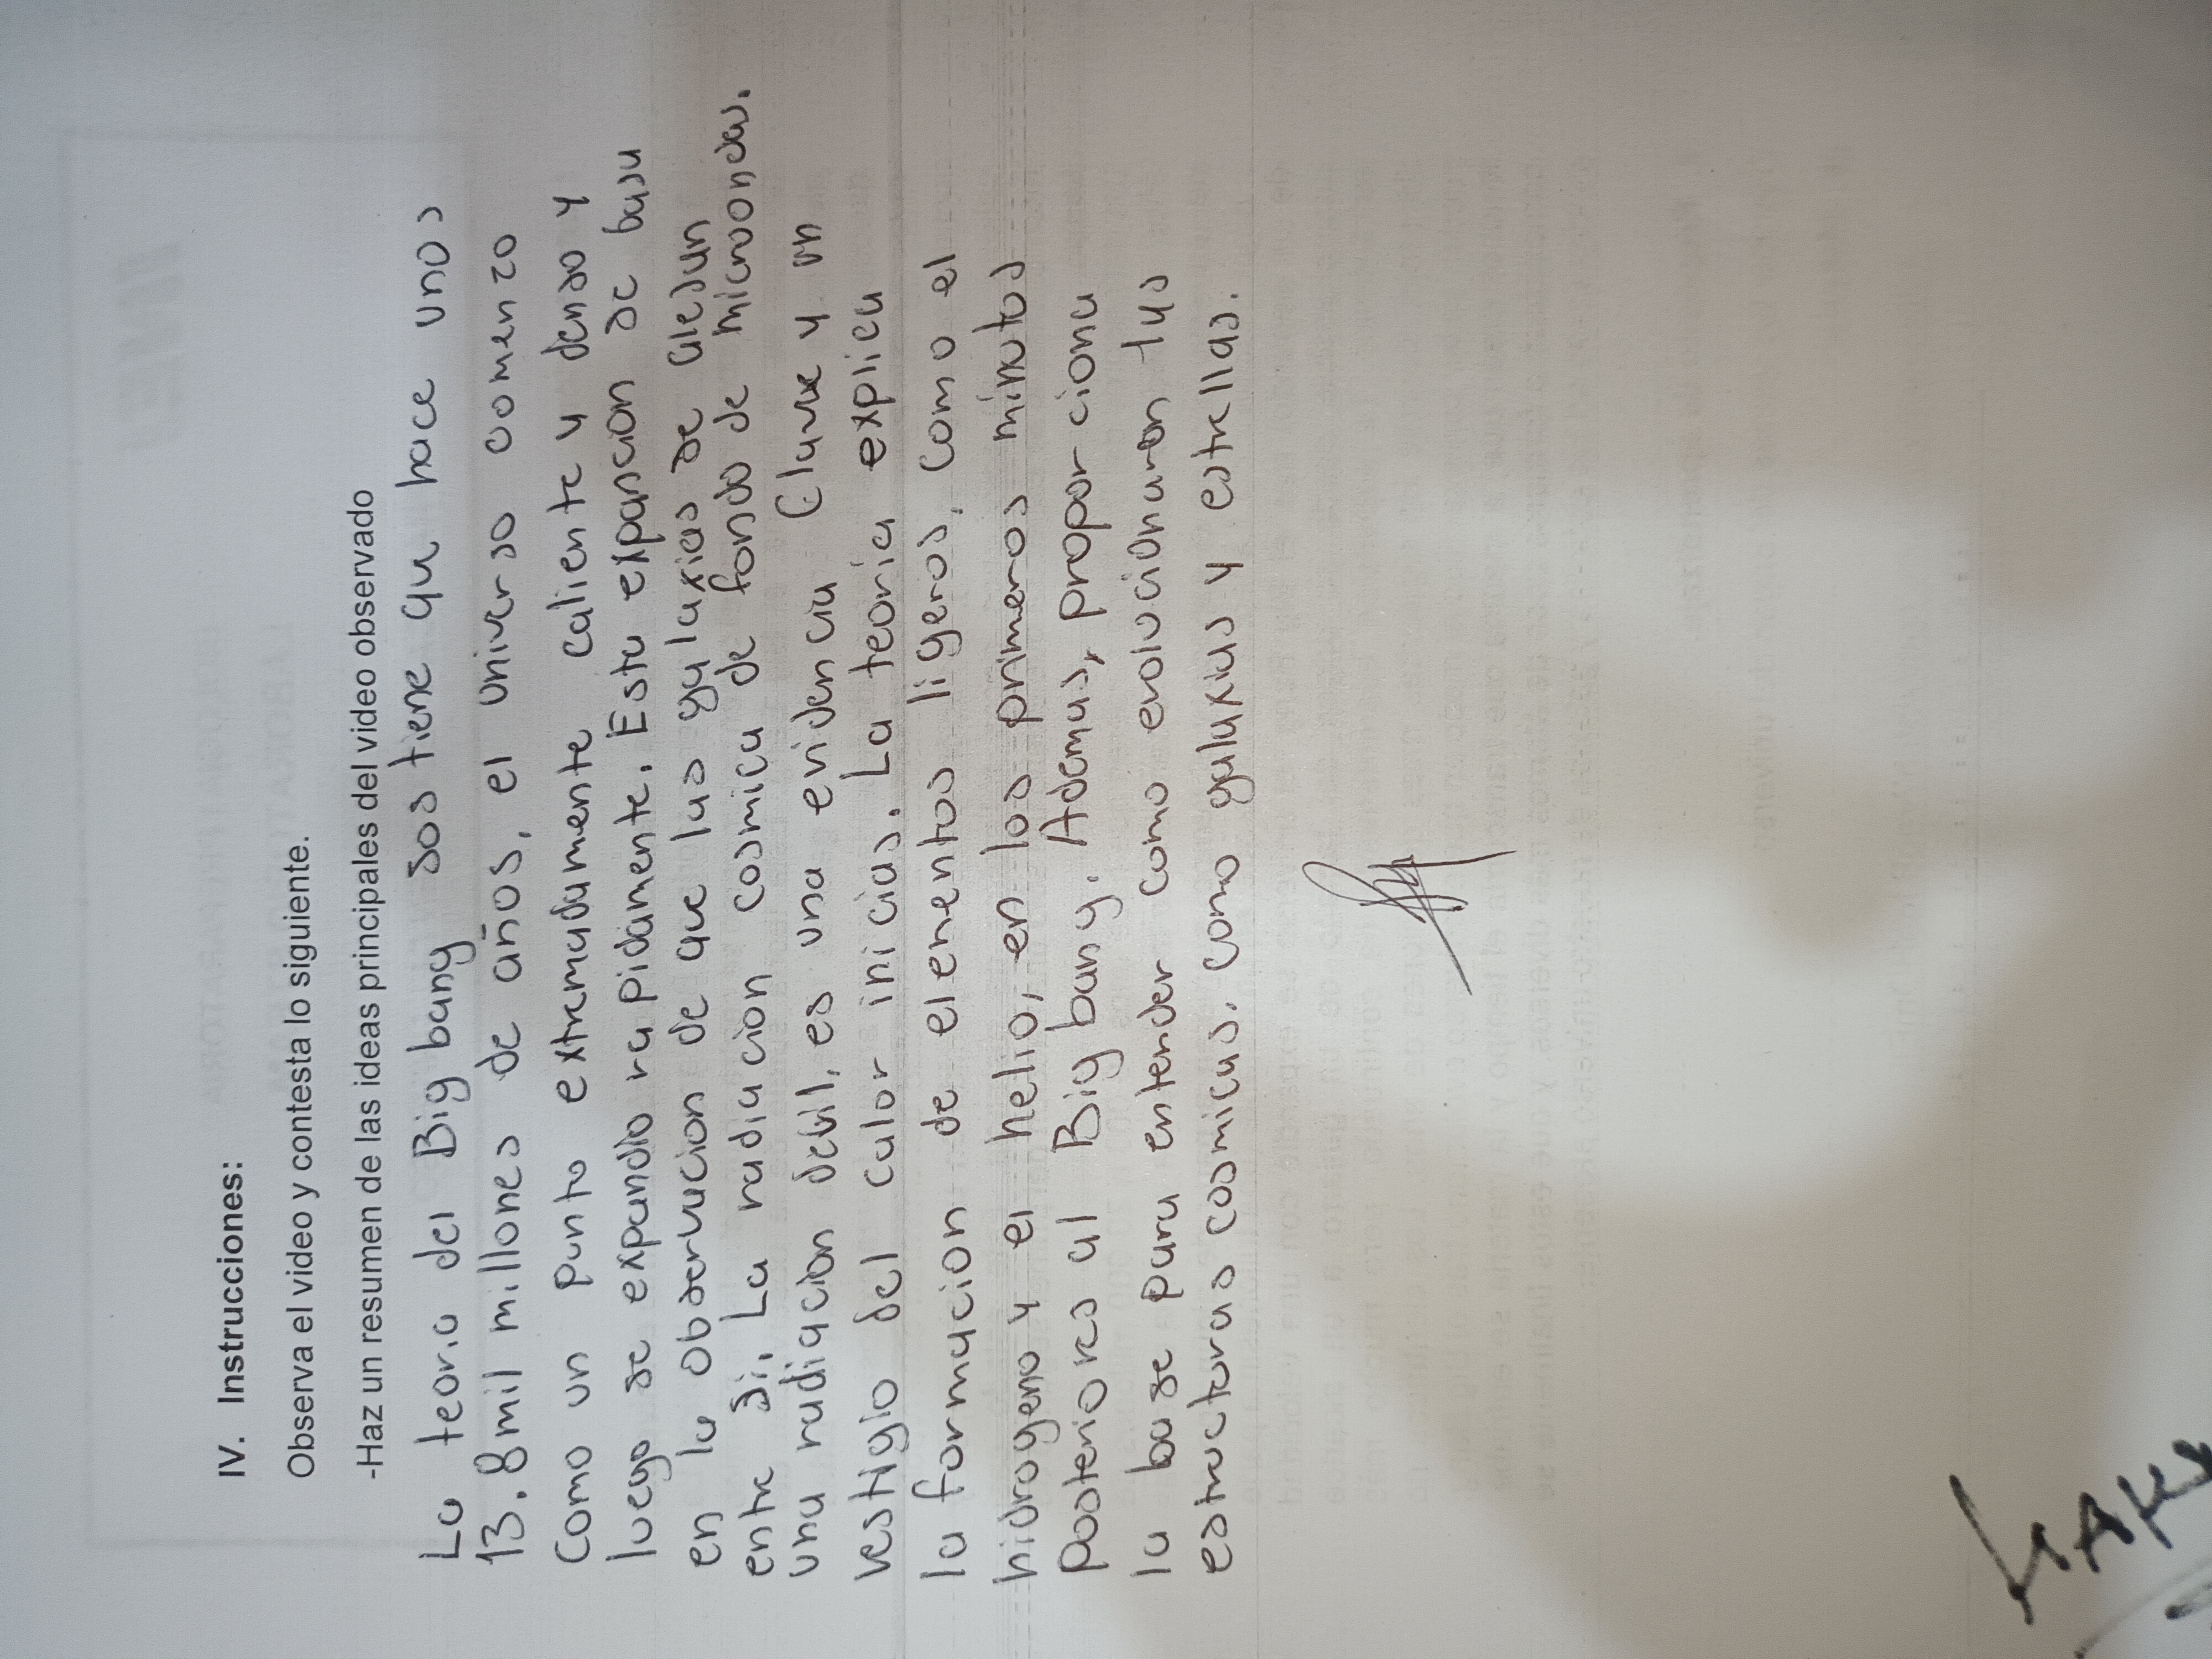 IV. Instrucciones:
Observa el video y contesta lo siguiente.
-Haz un resumen de las ideas principales del video observado
La teoria del Big bang sostiene que hace unos
13.8 mil millones de años, el universo comenzo
Como un punto extremadamente caliente y denso y
luego se expandio rapidamente. Esta expancion se basa
en la observacion de que las galaxias se alejan
entre si. La radiacion cosmica de fondo de microondas.
una radiacion debil, es una evidencia Clave y un
vestigio del calor inicias. La teoria explica
la formacion de elementos ligeros, como el
hidrogeno y el helio, en los primeros minutos
posteriores al Big bang. Ademas, proporciona
la base para entender como evolucionaron las
estructuras cosmicas. como galaxias y estrellas.